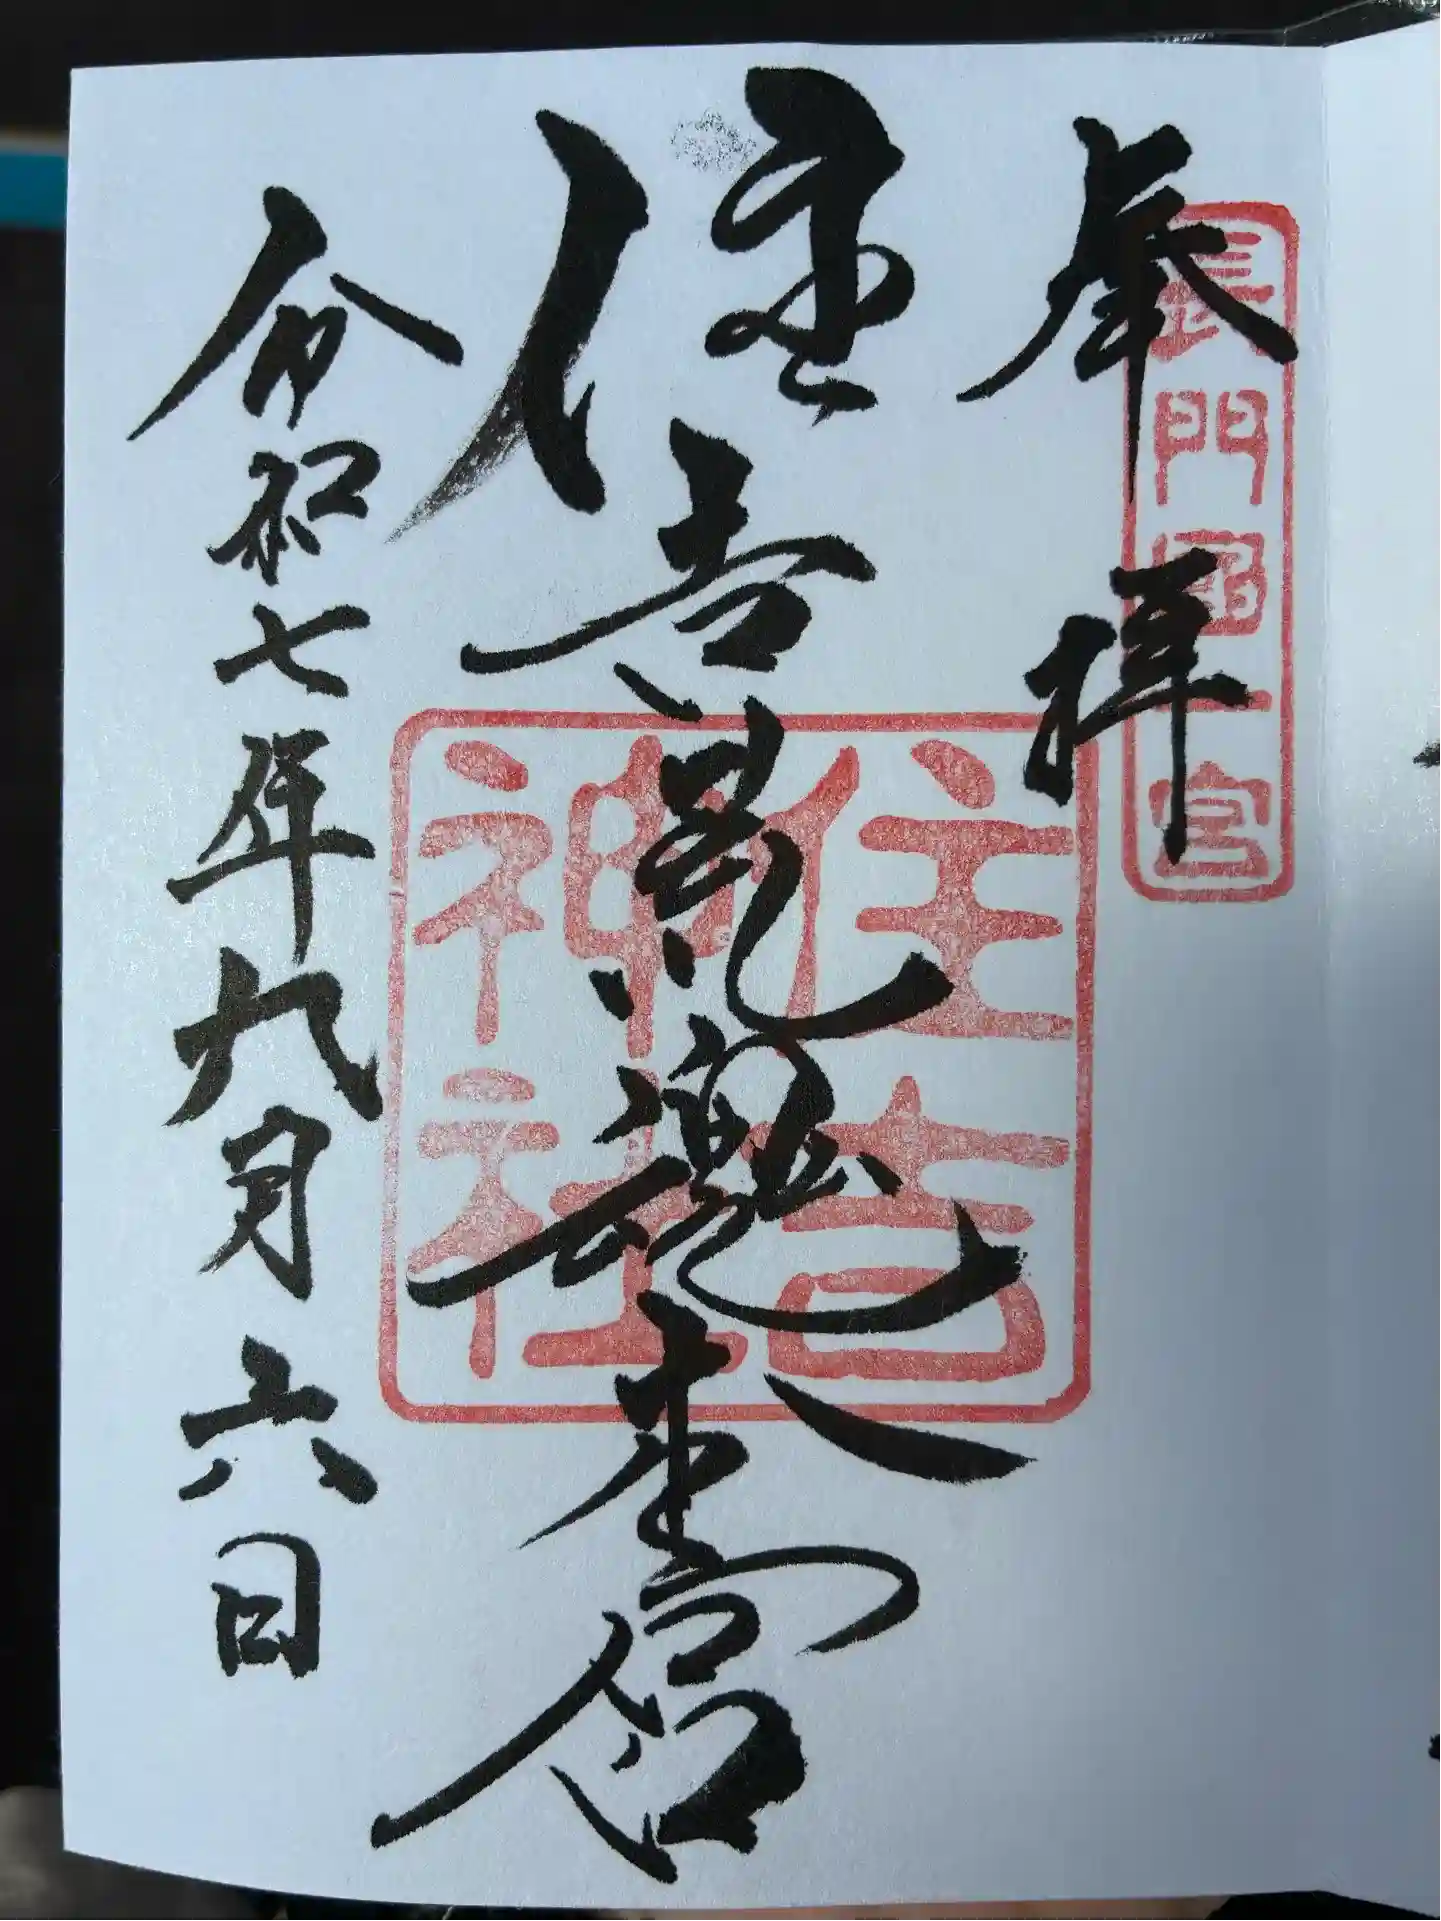 奉拝
長門國一宮
住吉荒魂本宮
住吉
神社
令和七年九月六日